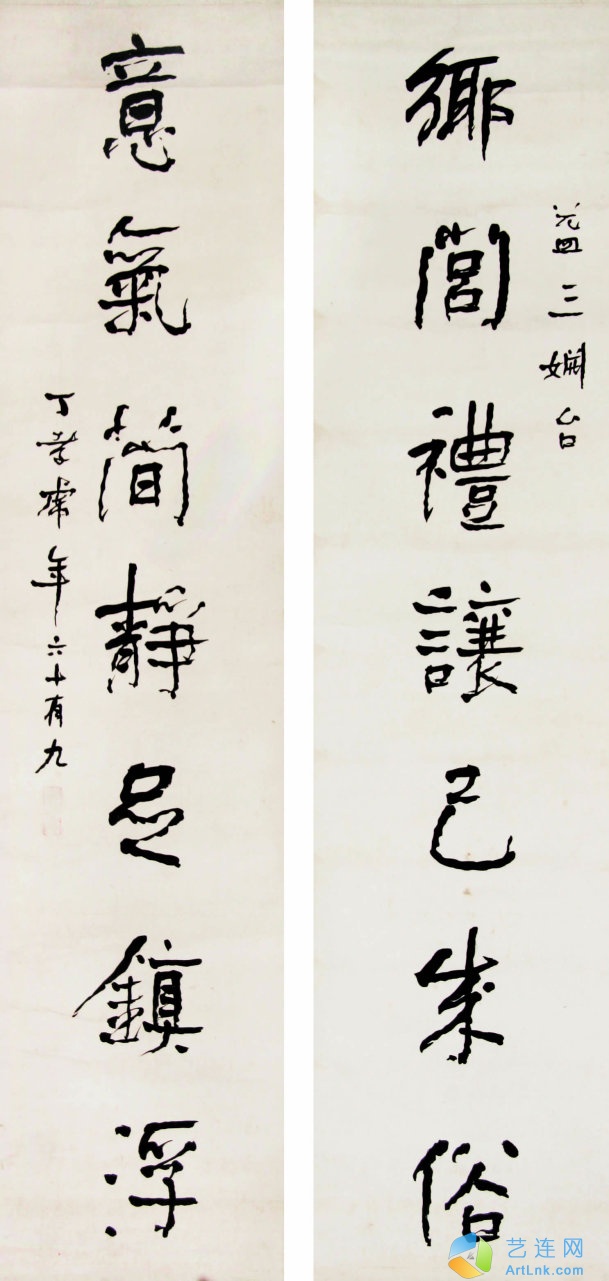 鄉閭禮讓已成俗
益三婣台
意氣簡靜足鎮浮
丁孝虎年六十有九
艺连网
ArtLnk.com